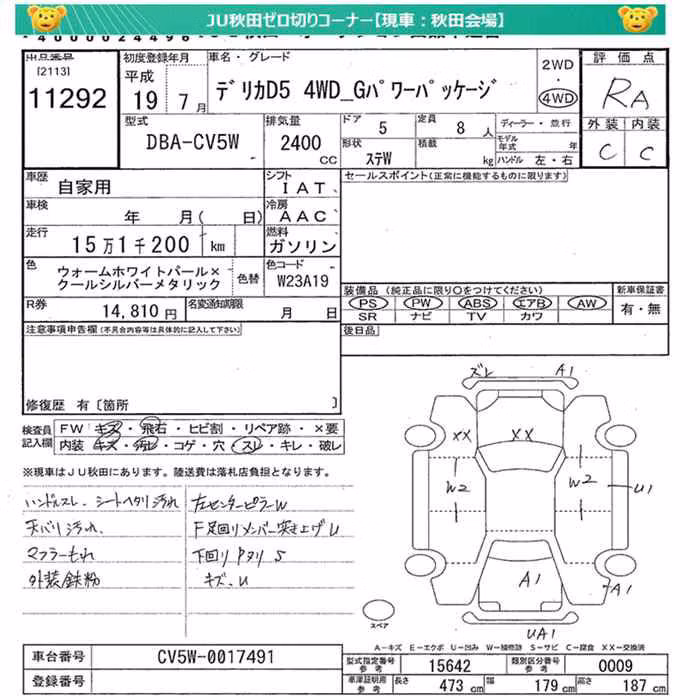 JU秋田ゼロ切りコーナー【現車：秋田会場】
出品番号
[2113]
11292
初度登録年月
平成
19 7月
車名・グレード
デリカD5 4WD_Gパワーパッケージ
2WD
・
4WD
評価点
RA
外装 内装
C C
型式
DBA-CV5W
排気量
2400
CC
ドア 5
定員 8 人
ディーラー・並行
モデル年式 年
形状 ステW
積載 kg
ハンドル 左・右
車歴
自家用
シフト
IAT
セールスポイント(正常に機能するものに限ります)
車検
年 月( 日)
冷房
AAC
走行
15万1千200 km
燃料
ガソリン
色
ウォームホワイトパール×
クールシルバーメタリック
色替
色コード
W23A19
装備品 (純正品に限り○をつけてください)
PS PW ABS エアB AW
SR ナビ TV カワ
新車保証書
有・無
R券
14,810 円
名変通知期限
月 日
後日品
注意事項申告欄 (不具合内容等は具体的に記入して下さい)
修復歴 有〔箇所 〕
検査員
記入欄
FW キズ・飛石・ヒビ割・リペア跡・×要
内装 キズ・汚レ・コゲ・穴・スレ・キレ・破レ
※現車はJU秋田にあります。陸送費は落札店負担となります。
ハンドルスレ、シートヘタリ汚れ
天バリ汚れ
マフラーもれ
外装鉄粉
左センターピラーW
F足回りメンバー突き上げU
下回りPタリ S
キズ、U
ズレ A1
XX XX
W2 W2
U1
A1 A1
UA1
スペア
A−キズ E−エクボ U−凹み W−補修跡 S−サビ C−腐食 XX−交換済
車台番号
CV5W-0017491
登録番号
型式指定番号
参考
15642
類別区分番号
参考
0009
車庫証明用
参考
長さ 473 cm
幅 179 cm
高さ 187 cm